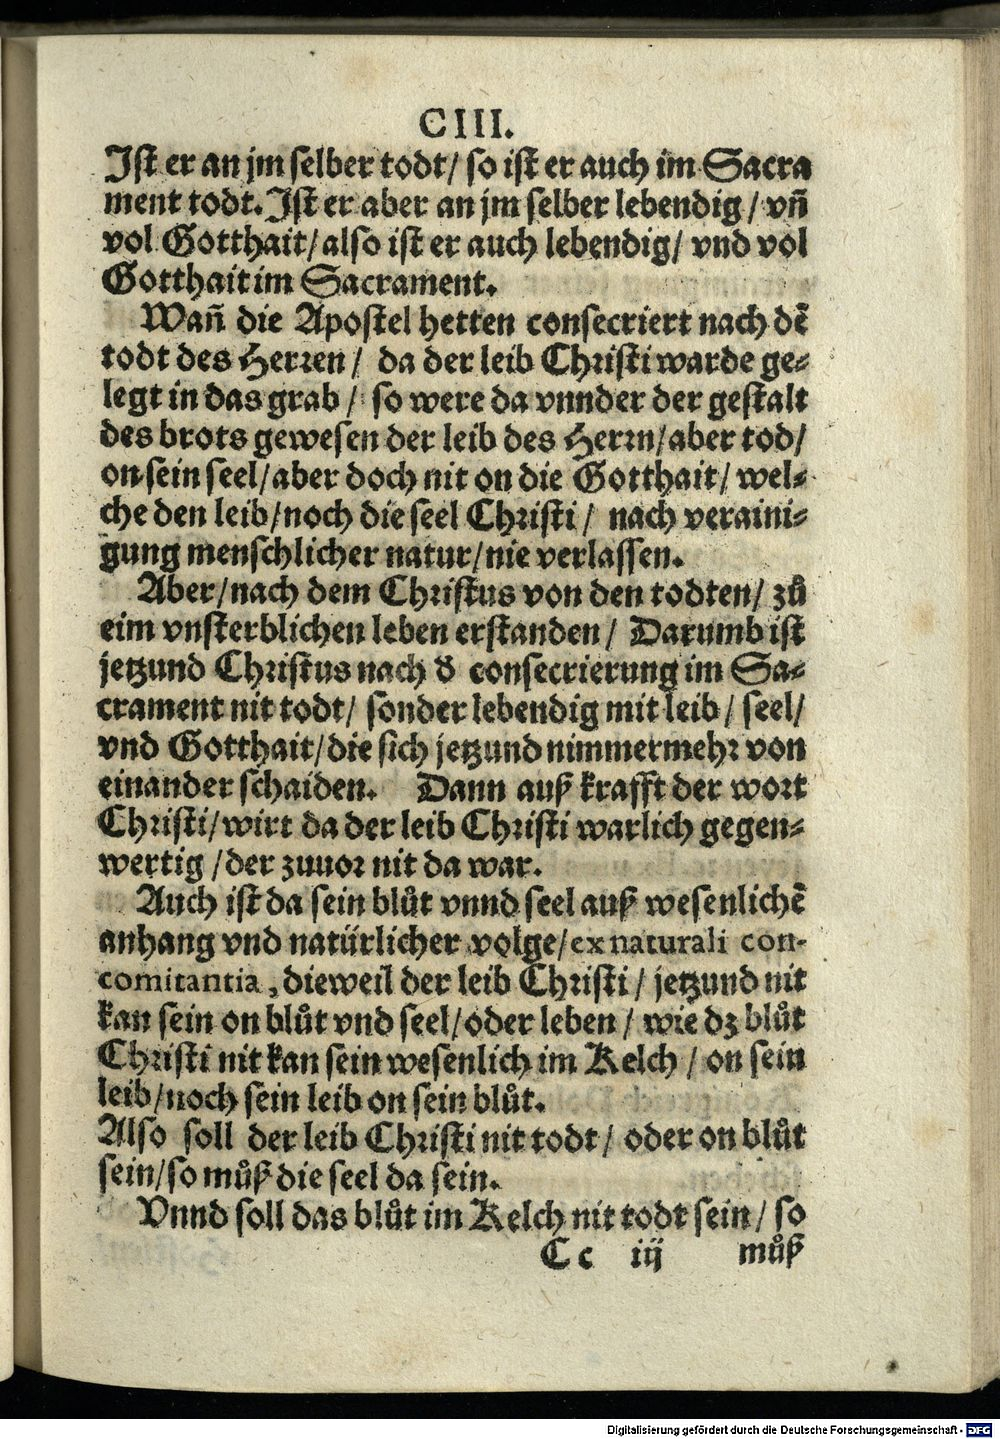 CIII.
Ist er an jm selber todt/ so ist er auch im Sacra
ment todt. Ist er aber an jm selber lebendig/ vñ
vol Gotthait/ also ist er auch lebendig/ vnd vol
Gotthait im Sacrament.
Wañ die Apostel hetten consecriert nach dẽ
todt des Herren/ da der leib Christi warde ge⸗
legt in das grab/ so were da vnnder der gestalt
des brots gewesen der leib des Herrn/ aber tod/
on sein seel/ aber doch nit on die Gotthait/ wel⸗
che den leib/ noch die seel Christi/ nach veraini⸗
gung menschlicher natur/ nie verlassen.
Aber/ nach dem Christus von den todten/ zů
eim vnsterblichen leben erstanden/ Darumb ist
jetzund Christus nach d̕ consecrierung im Sa⸗
crament nit todt/ sonder lebendig mit leib/ seel/
vnd Gotthait/ die sich jetzund nimmermehr von
einander schaiden. Dann auß krafft der wort
Christi/ wirt da der leib Christi warlich gegen⸗
wertig/ der zuuor nit da war.
Auch ist da sein blůt vnnd seel auß wesenlichẽ
anhang vnd natürlicher volge/ ex naturali con-
comitantia, dieweil der leib Christi/ jetzund nit
kan sein on blůt vnd seel/ oder leben/ wie dz blůt
Christi nit kan sein wesenlich im Kelch/ on sein
leib/ noch sein leib on sein blůt.
Also soll der leib Christi nit todt/ oder on blůt
sein/ so můß die seel da sein.
Vnnd soll das blůt im Kelch nit todt sein/ so
Cc iij můß
Digitalisierung gefördert durch die Deutsche Forschungsgemeinschaft - DFG